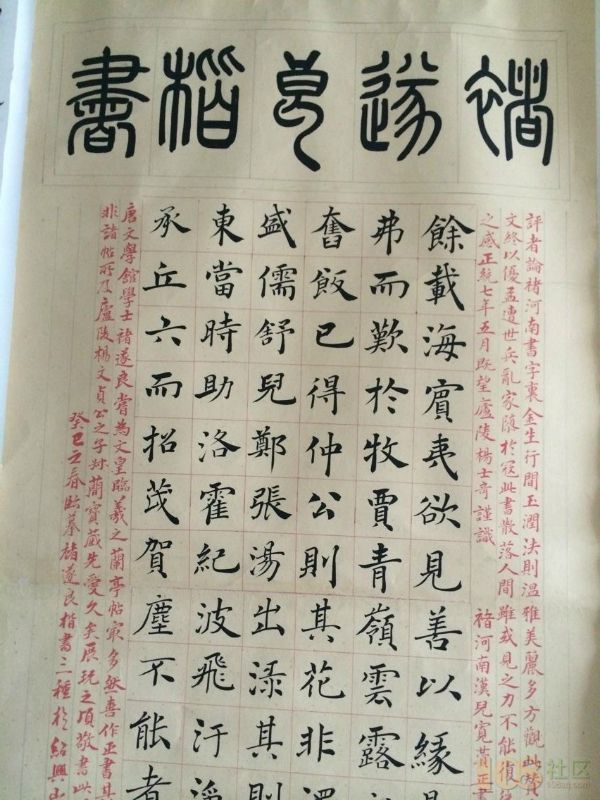 褚遂良楷書
評者論褚河南書字裏金生行間玉潤法則溫雅美麗多方觀此贊
文終以優孟遭世兵亂家隨於寇此書散落人間雖或見之力不能復
之感正統七年五月既望廬陵楊士奇謹識 褚河南漢兒寬贊正書
餘載海賓夷欲見善以緣
弗而歎於牧賈青嶺雲露
奮飯已得仲公則其花非
盛儒舒兒鄭張湯出渌其則
東當時助洛霍紀波飛汗淨
承丘六而招茂賀塵不能者
唐文學館學士褚遂良嘗為文皇臨羲之蘭亭帖最多然喜作正書其
非諸帖所及廬陵楊文貞公之子寶藏先愛久矣展玩之頃敬書此
癸巳之春臨摹褚遂良楷書二種於紹興山
社区